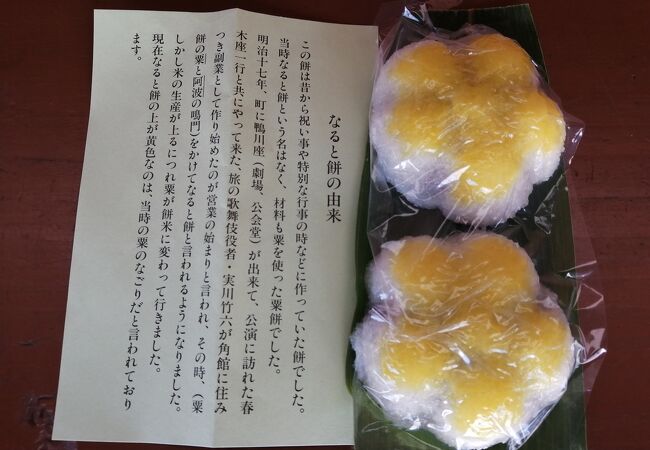 なると餅の由来
この餅は昔から祝い事や特別な行事の時などに作っていた餅でした。
当時なると餅という名はなく、材料も粟を使った粟餅でした。
明治十七年、町に鴨川座（劇場、公会堂）が出来て、公演に訪れた春
木座一行と共にやって来た、旅の歌舞伎役者・実川竹六が角館に住み
つき副業として作り始めたのが営業の始まりと言われ、その時、（粟
餅の粟と阿波の鳴門）をかけてなると餅と言われるようになりました。
しかし米の生産が上るにつれ粟が餅米に変わって行きました。
現在なると餅の上が黄色なのは、当時の粟のなごりだと言われており
ます。